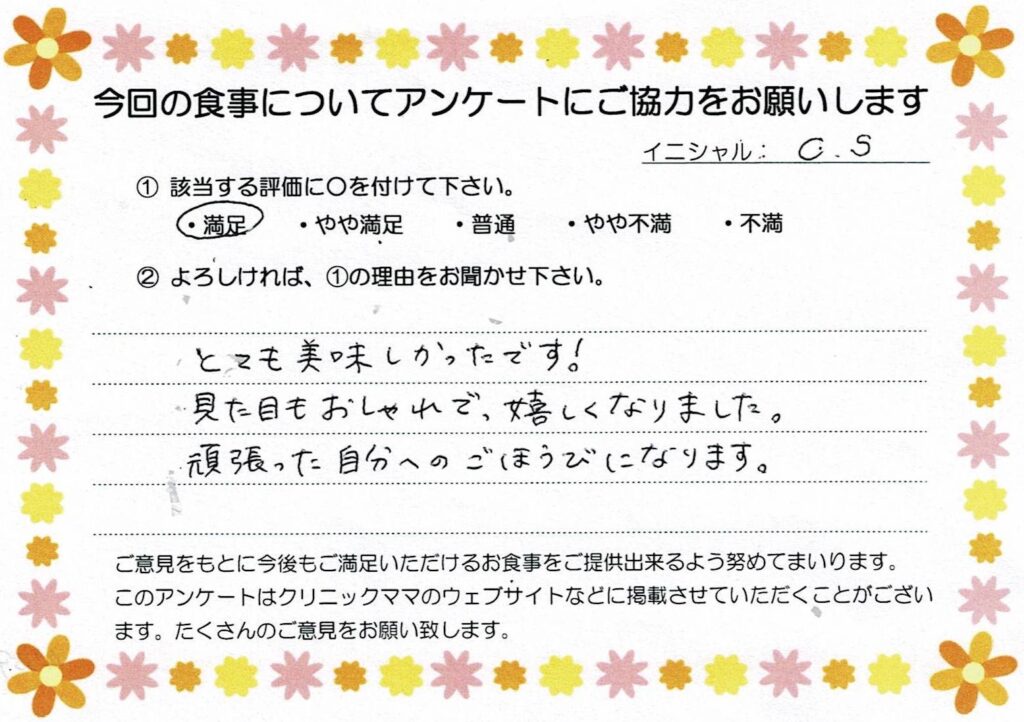 今回の食事についてアンケートにご協力をお願いします
イニシャル： O.S
① 該当する評価に〇を付けて下さい。
・満足 ・やや満足 ・普通 ・やや不満 ・不満
② よろしければ、①の理由をお聞かせ下さい。
とても美味しかったです!
見た目もおしゃれで、嬉しくなりました。
頑張った自分へのごほうびになります。
ご意見をもとに今後もご満足いただけるお食事をご提供出来るよう努めてまいります。
このアンケートはクリニックママのウェブサイトなどに掲載させていただくことがござい
ます。たくさんのご意見をお願い致します。